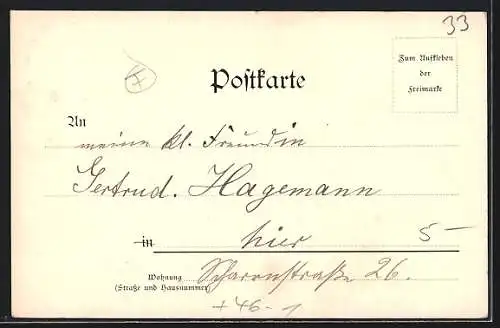 33
Zum Aufkleben
der
Freimarke
Postkarte
An
meine kl. Freundin
Gertrud. Hagemann
in hier 5-
Wohnung
(Straße und Hausnummer)
Scharrnstraße 26.
+46-1